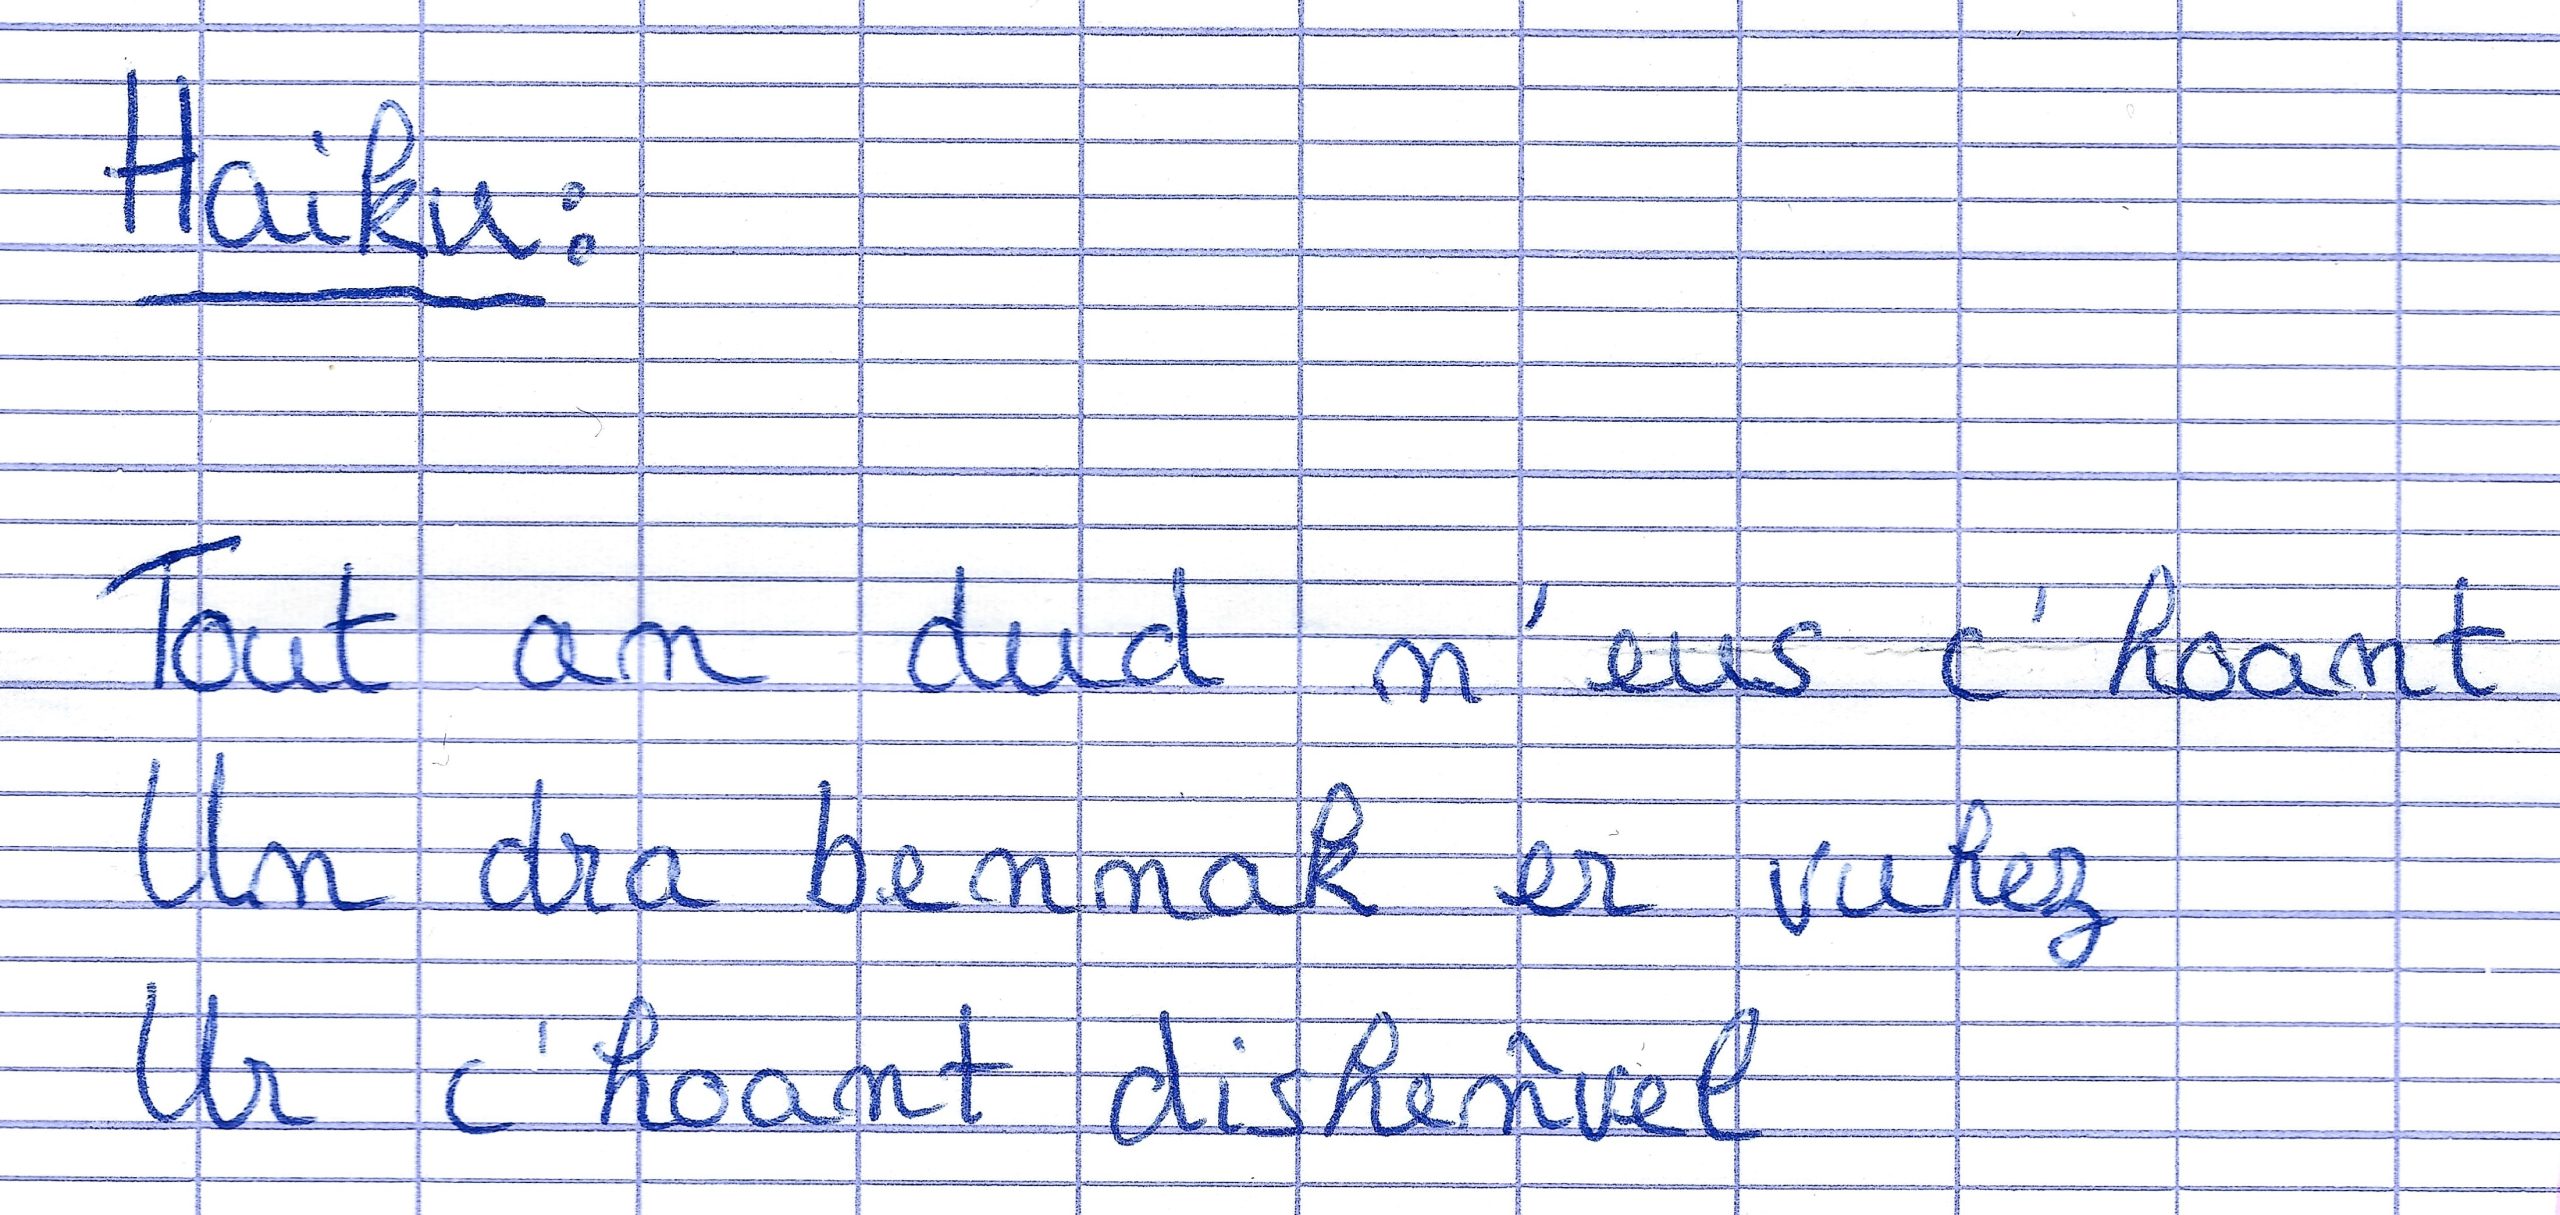 Haiku:
Tout an dud n'eus c'hoant
Un dra bennak er vuhez
Ur c'hoant disheñvel